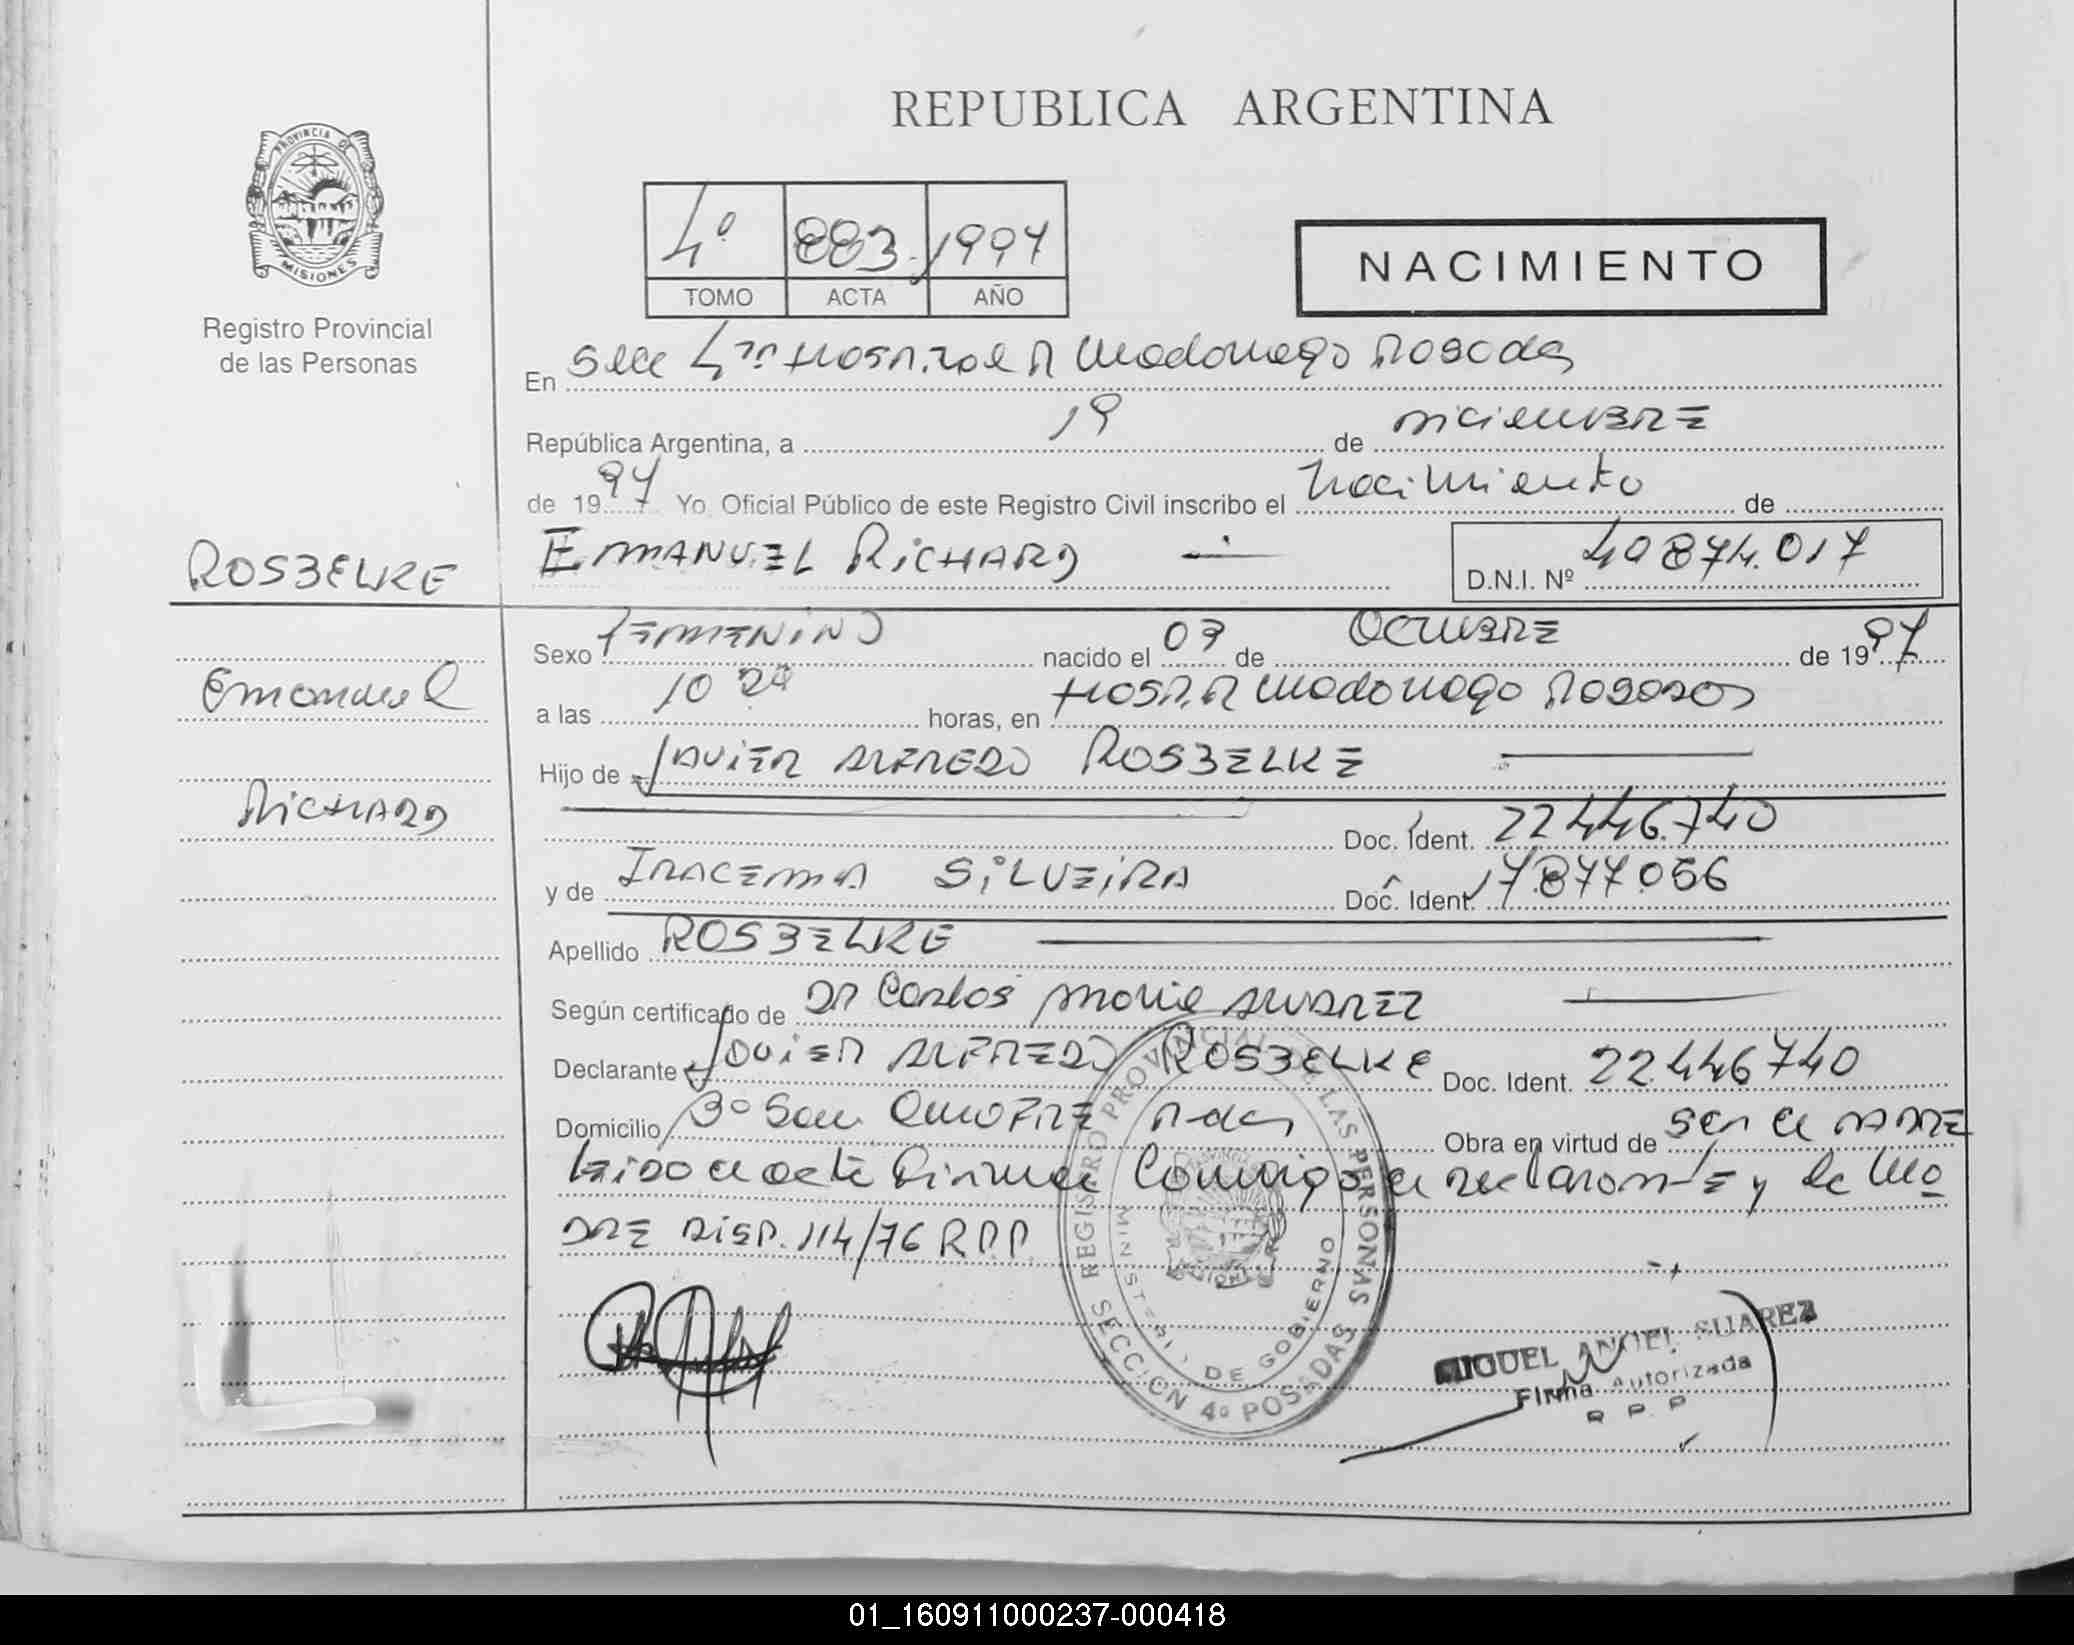 REPUBLICA ARGENTINA
PROVINCIA DE
MISIONES
Registro Provincial
de las Personas
4º 883 1997
TOMO ACTA AÑO
NACIMIENTO
En Secc 4ta Hospital R Madariaga Posadas
República Argentina, a 19 de Diciembre
de 1997 Yo, Oficial Público de este Registro Civil inscribo el Nacimiento de
EMANUEL RICHARD
D.N.I. Nº 40874.017
ROSBELKE
Emanuel
RICHARD
Sexo FEMENINO nacido el 03 de OCTUBRE de 1997
a las 10 20 horas, en HOSP. R Madariaga Posadas
Hijo de JAVIER ALFREDO ROSBELKE
Doc. Ident. 22446.740
y de IRACEMA SILVEIRA Doc. Ident. 17.877.056
Apellido ROSBELKE
Según certificado de DR Carlos Mario SUAREZ
Declarante JAVIER ALFREDO ROSBELKE Doc. Ident. 22.446740
Domicilio Bº San ONOFRE Pdas Obra en virtud de ser el PADRE
Leido el acta Firma Conmigo el declarante y la Ma
DRE DISP. 114/76 R.P.P.
REGISTRO PROVINCIAL DE LAS PERSONAS
MINISTERIO DE GOBIERNO
SECCION 4º POSADAS
MIGUEL ANGEL SUAREZ
Firma Autorizada
R. P. P
01_160911000237-000418